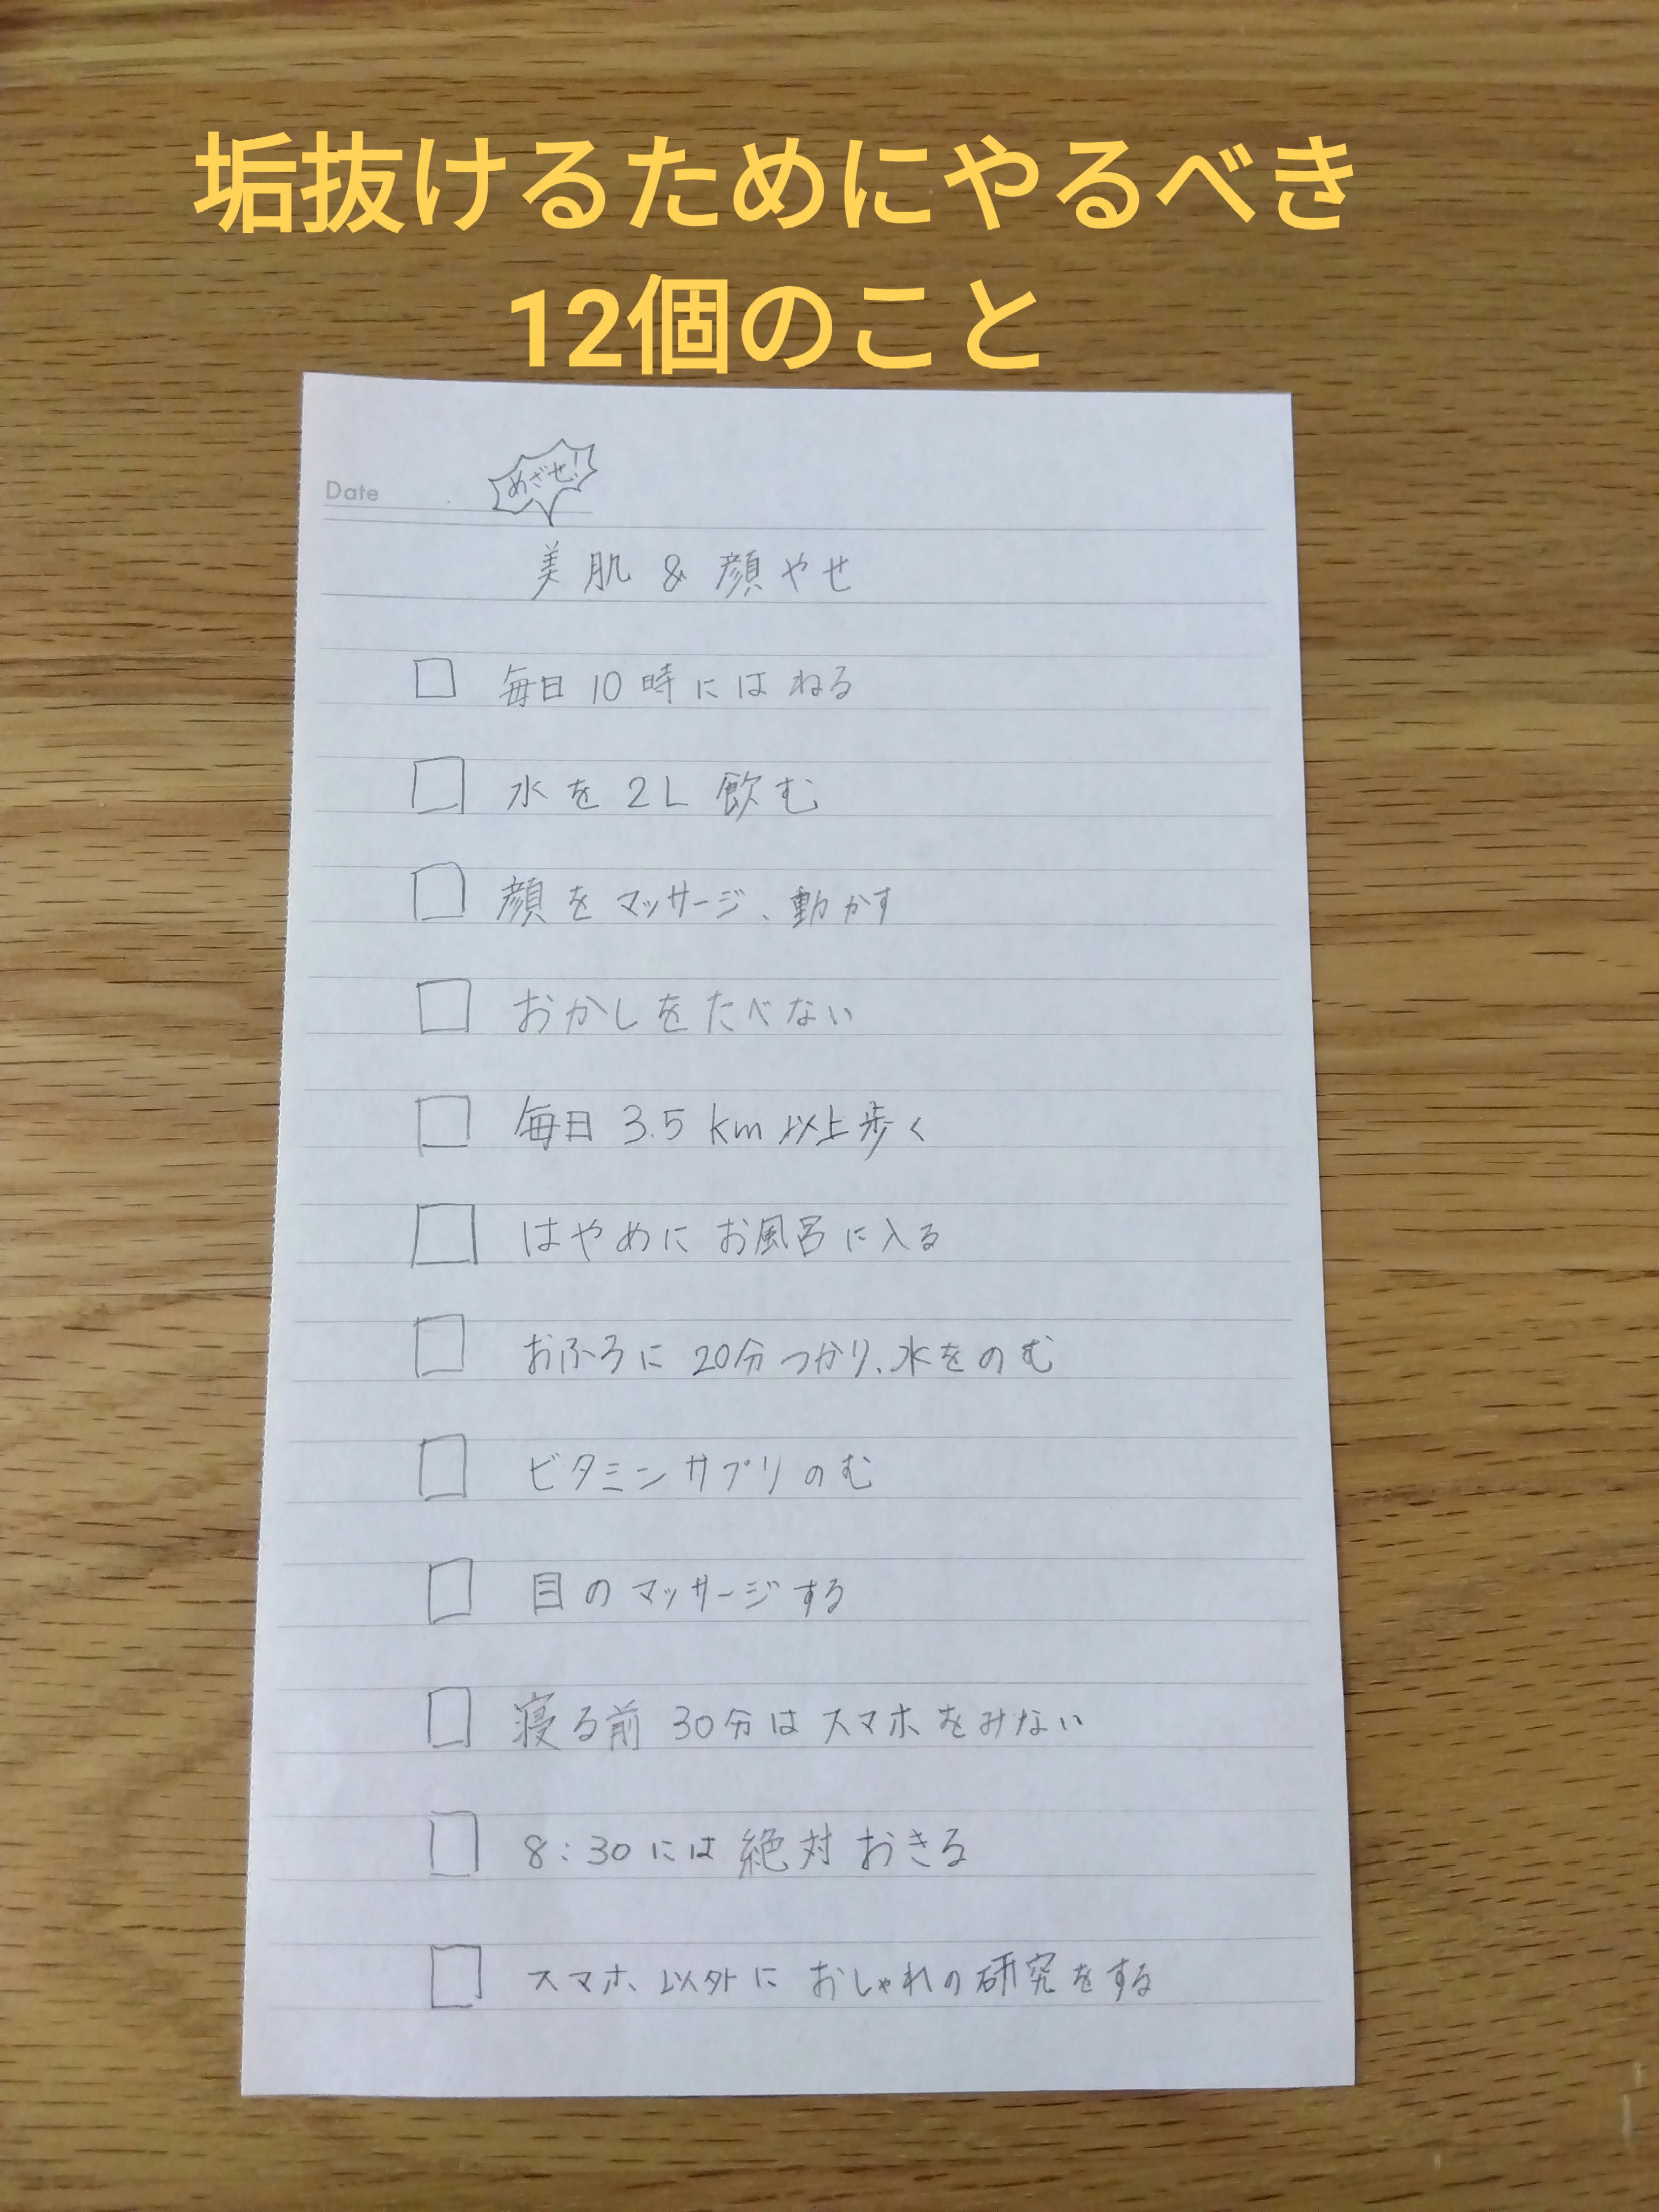 垢抜けるためにやるべき
12個のこと
Date
めざせ!
美肌 & 顔やせ
□ 毎日 10 時にはねる
□ 水を 2L 飲む
□ 顔をマッサージ、動かす
□ おかしをたべない
□ 毎日 3.5 km 以上歩く
□ はやめにお風呂に入る
□ おふろに 20分つかり、水をのむ
□ ビタミンサプリのむ
□ 目のマッサージする
□ 寝る前 30分はスマホをみない
□ 8:30には絶対おきる
□ スマホ以外におしゃれの研究をする